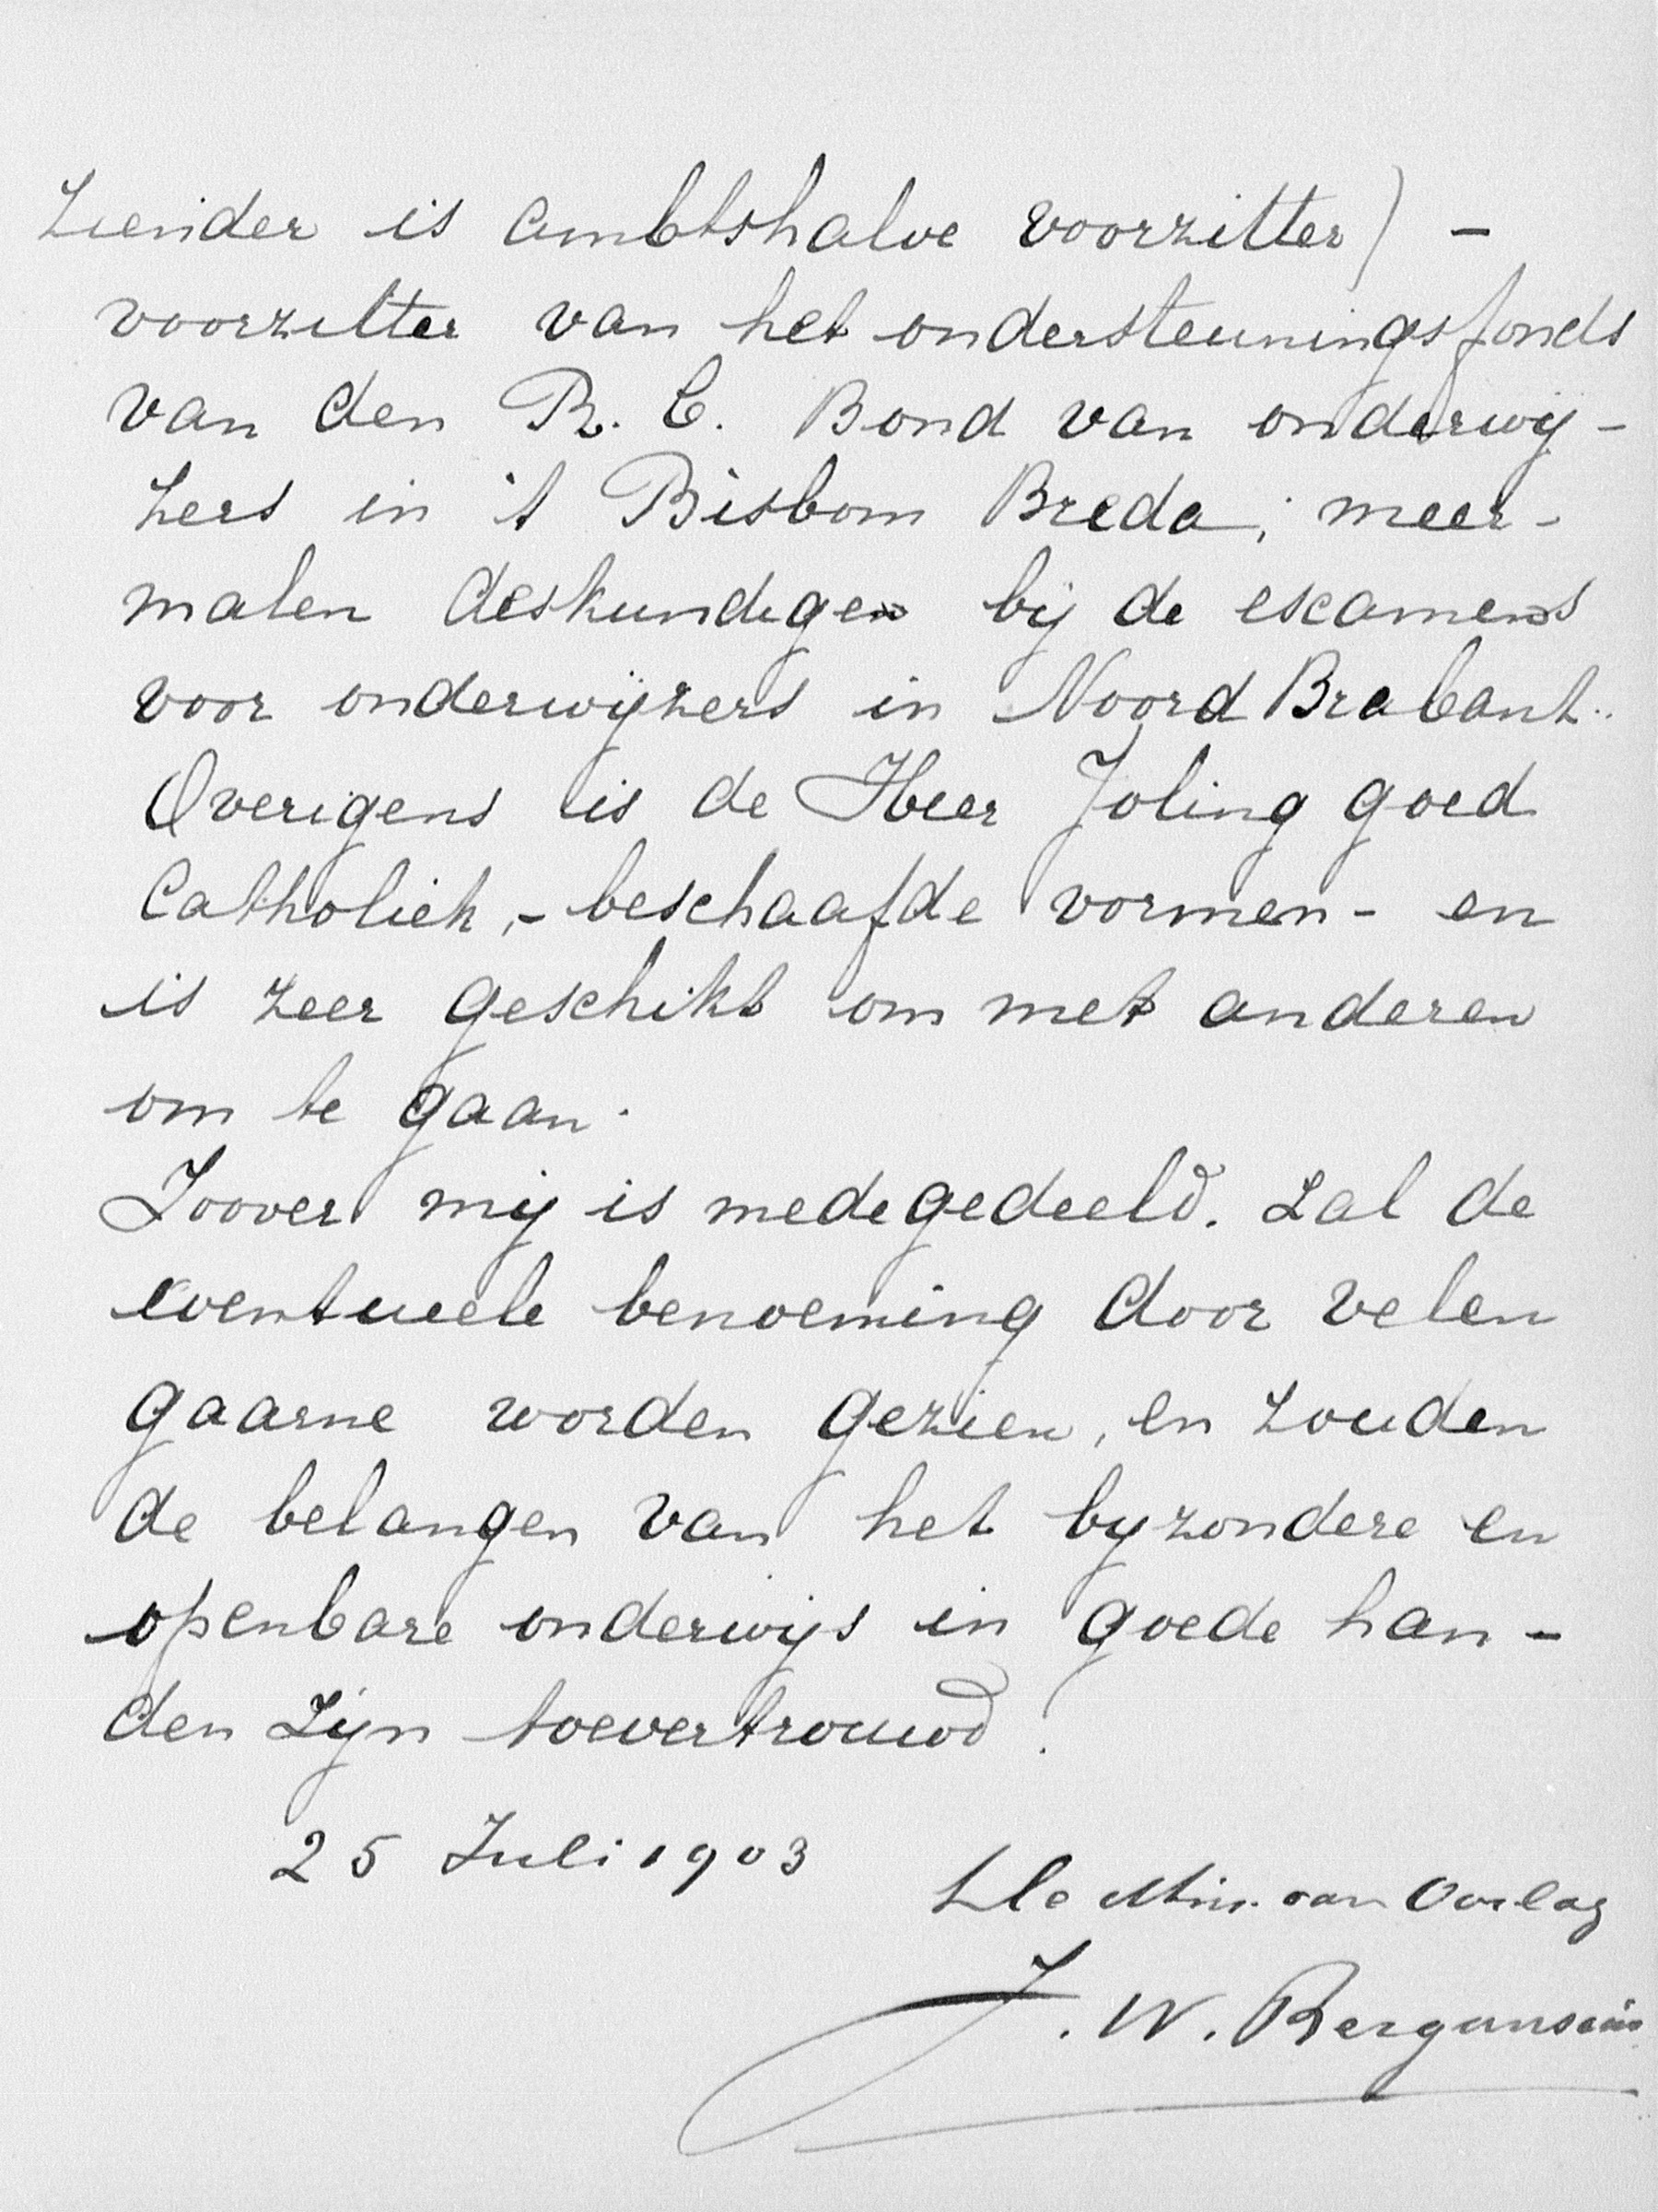 ziender is ambtshalve voorzitter) -
voorzitter van het ondersteuningsfonds
van den R. C. Bond van onderwij-
zers in 't Bisdom Breda; meer-
malen deskundigen bij de examens
voor onderwijzers in Noord Brabant.
Overigens is de Heer Joling goed
Catholiek, - beschaafde vormen - en
is zeer geschikt om met anderen
om te gaan.
Zoover mij is medegedeeld. zal de
eventueele benoeming door velen
gaarne worden gezien, en zouden
de belangen van het byzondere en
openbare onderwijs in goede han-
den zijn toevertrouwd.
25 Juli 1903
Min. van Oorlog
J. W. Bergansius